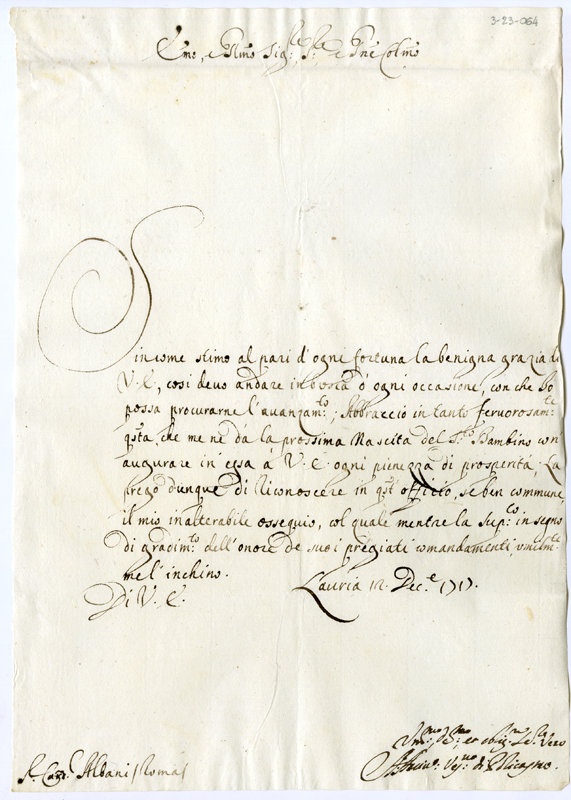 3-23-064
Emo, e Rmo Sig.re, Sig.re e Prñe Colmo
Sincome stimo al pari d'ogni fortuna la benigna grazia di
V. E., cosi devo andare in traccia d'ogni occasione, con che Io
possa procurarne l'avanzam.to; Abbraccio in tanto fervorosam.te
qsta, che me ne dà la prossima Nascita del S.to Bambino con
augurare in essa à V. E. ogni pienezza di prosperità. La
prego dunque di riconoscere in qst' officio, se ben commune,
il mio inalterabile ossequio, col quale mentre la sup.co in segno
di gradim.to dell'onore de suoi pregiati comandamenti, umilm.te
me l'inchino.
Di V. E.
Lauria 12. Dec.e 1717.
S.r Card.l Albani / Roma /
Vm.mo D.mo, et obblig.mo Se.re Vero
Vęs.vo di Policastro.